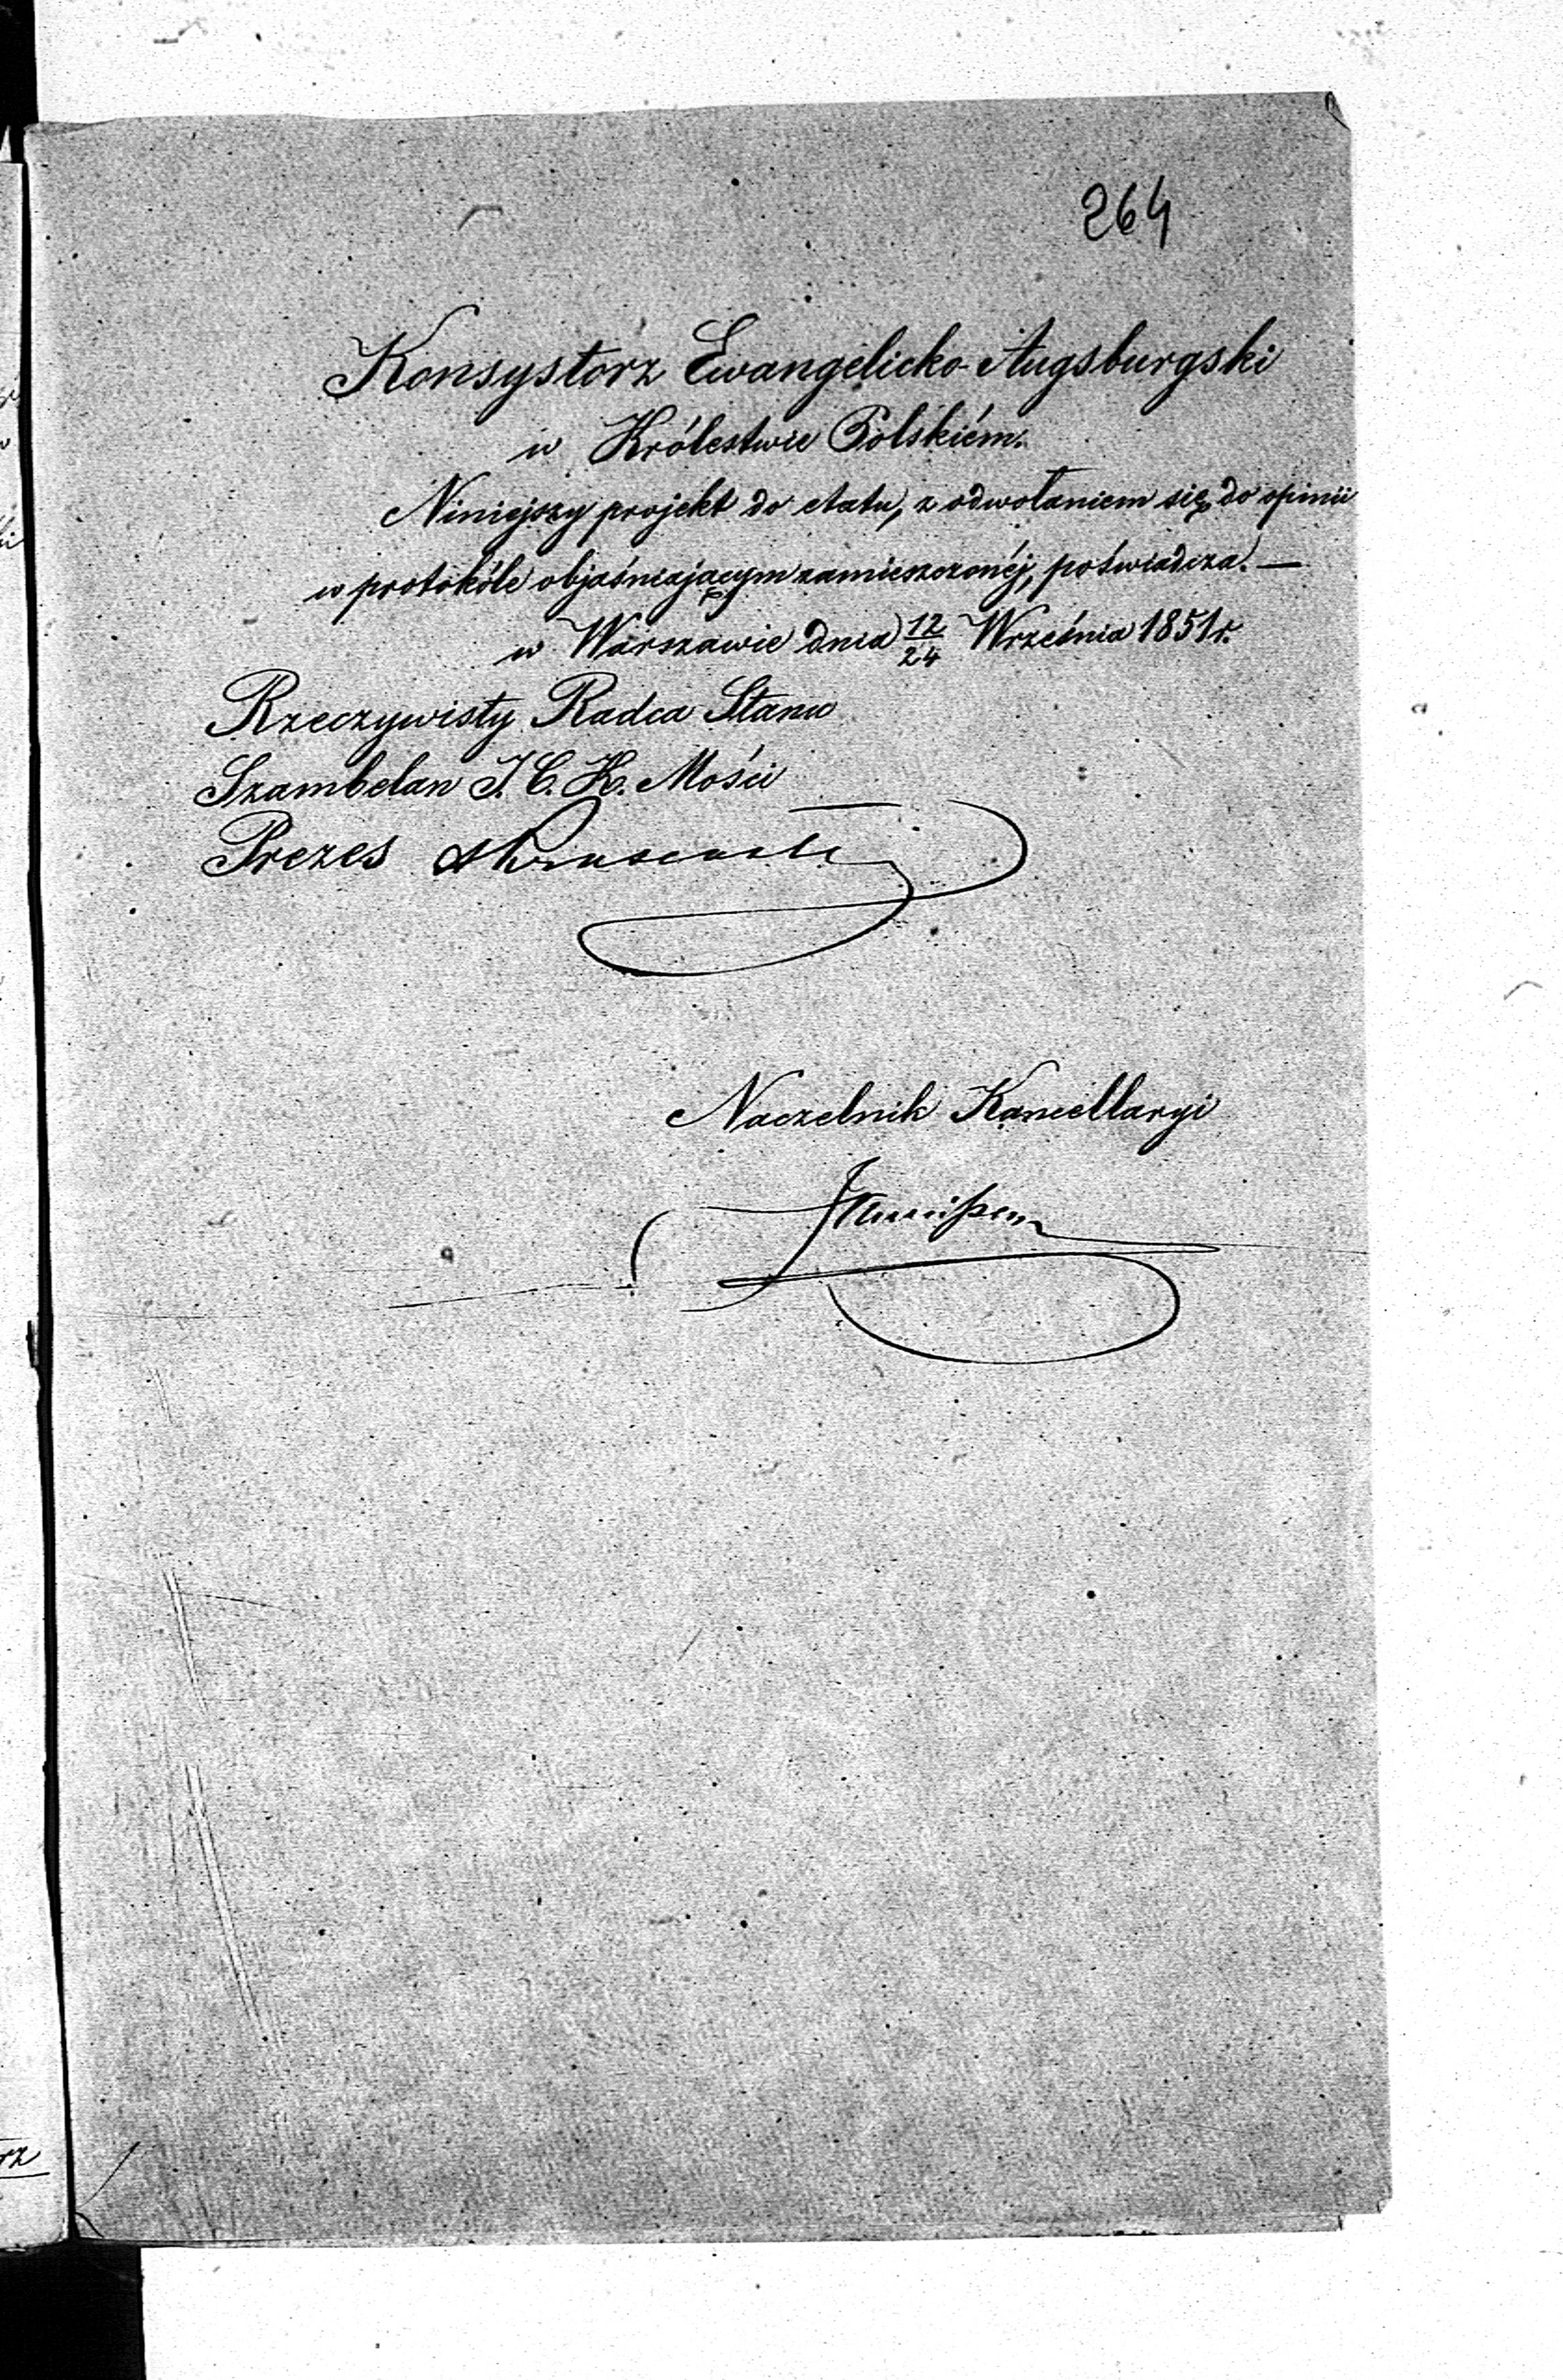 264
Konsystorz Ewangelicko-Augsburgski
w Królestwie Polskiém.
Niniejszy projekt do etatu, z odwołaniem się do opinii
w protokóle objaśniającym zamieszczonéj, poświadcza. —
w Warszawie dnia 12/24 Września 1851 r.
Rzeczywisty Radca Stanu
Szambelan J. C. K. Mości
Prezes
Naczelnik Kancellaryi